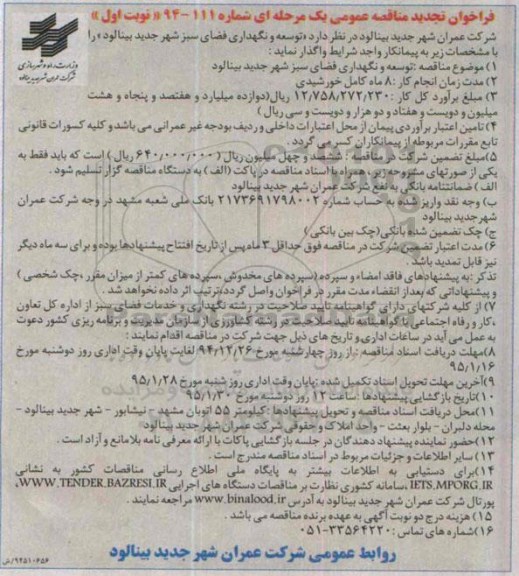 فراخوان تجدید مناقصه عمومی یک مرحله ای شماره ۱۱۱-۹۴ «نوبت اول»
وزارت راه و شهرسازی
شرکت عمران شهر جدید بینالود
شرکت عمران شهر جدید بینالود در نظر دارد «توسعه و نگهداری فضای سبز شهر جدید بینالود» را
با مشخصات زیر به پیمانکار واجد شرایط واگذار نماید :
۱) موضوع مناقصه :توسعه و نگهداری فضای سبز شهر جدید بینالود
۲) مدت زمان انجام کار :۸ ماه کامل خورشیدی
۳) مبلغ برآورد کل کار :۱۲,۷۵۸,۲۷۲,۲۳۰ ریال(دوازده میلیارد و هفتصد و پنجاه و هشت
میلیون و دویست و هفتاد و دو هزار و دویست و سی ریال )
۴) تامین اعتبار برآوردی پیمان از محل اعتبارات داخلی و ردیف بودجه غیر عمرانی می باشد و کلیه کسورات قانونی
تابع مقررات مربوطه از پیمانکاران کسر می گردد .
۵) مبلغ تضمین شرکت در مناقصه : ششصد و چهل میلیون ریال (۶۴۰,۰۰۰,۰۰۰ ریال ) است که باید فقط به
یکی از صورتهای مشروحه زیر ، همراه با اسناد مناقصه در پاکت (الف ) به دستگاه مناقصه گزار تسلیم شود .
الف ) ضمانتنامه بانکی به نفع شرکت عمران شهر جدید بینالود
ب) وجه نقد واریز شده به حساب شماره ۲۱۷۳۶۹۱۷۹۸۰۰۲ بانک ملی شعبه مشهد در وجه شرکت عمران
شهر جدید بینالود
ج) چک تضمین شده بانکی(چک بین بانکی )
۶) مدت اعتبار تضمین شرکت در مناقصه فوق حداقل ۳ ماه پس از تاریخ افتتاح پیشنهادها بوده و برای سه ماه دیگر
نیز قابل تمدید باشد .
تذکر :به پیشنهادهای فاقد امضاء و سپرده (سپرده های مخدوش ،سپرده های کمتر از میزان مقرر ،چک شخصی )
و پیشنهاداتی که بعد از انقضاء مدت مقرر در فراخوان واصل گردد،ترتیب اثر داده نخواهد شد .
۷) از کلیه شرکتهای دارای گواهینامه تایید صلاحیت در رشته نگهداری و خدمات فضای سبز از اداره کل تعاون
،کار و رفاه اجتماعی یا گواهینامه تایید صلاحیت در رشته کشاورزی از سازمان مدیریت و برنامه ریزی کشور دعوت
به عمل می آید در ساعات اداری و تاریخ های ذیل جهت شرکت در مناقصه اقدام نمایند :
۸) مهلت دریافت اسناد مناقصه :از روز چهارشنبه مورخ ۹۴/۱۲/۲۶ لغایت پایان وقت اداری روز دوشنبه مورخ
۹۵/۱/۱۶
۹) آخرین مهلت تحویل اسناد تکمیل شده :پایان وقت اداری روز شنبه مورخ ۹۵/۱/۲۸
۱۰) تاریخ بازگشایی پیشنهادها :ساعت ۱۲ روز دوشنبه مورخ ۹۵/۱/۳۰
۱۱) محل دریافت اسناد مناقصه و تحویل پیشنهادها :کیلومتر ۵۵ اتوبان مشهد - نیشابور - شهر جدید بینالود -
محله دلبران - بلوار بعثت - واحد املاک و حقوقی شرکت عمران شهر جدید بینالود
۱۲) حضور نماینده پیشنهاد دهندگان در جلسه بازگشایی پاکات با ارائه معرفی نامه بلامانع و آزاد است .
۱۳) سایر اطلاعات و جزئیات مربوط در اسناد مناقصه مندرج است .
۱۴) برای دستیابی به اطلاعات بیشتر به پایگاه ملی اطلاع رسانی مناقصات کشور به نشانی
IETS.MPORG.IR ،سامانه کشوری نظارت بر مناقصات دستگاه های اجرایی WWW.TENDER.BAZRESI.IR،
پورتال شرکت عمران شهر جدید بینالود به آدرس www.binalood.ir مراجعه نمایند .
۱۵) هزینه درج دو نوبت آگهی به عهده برنده مناقصه می باشد .
۱۶) شماره های تماس :۳۳۵۶۴۲۲۰-۰۵۱
روابط عمومی شرکت عمران شهر جدید بینالود
۹۴۵۱۰۶۵۶/ش